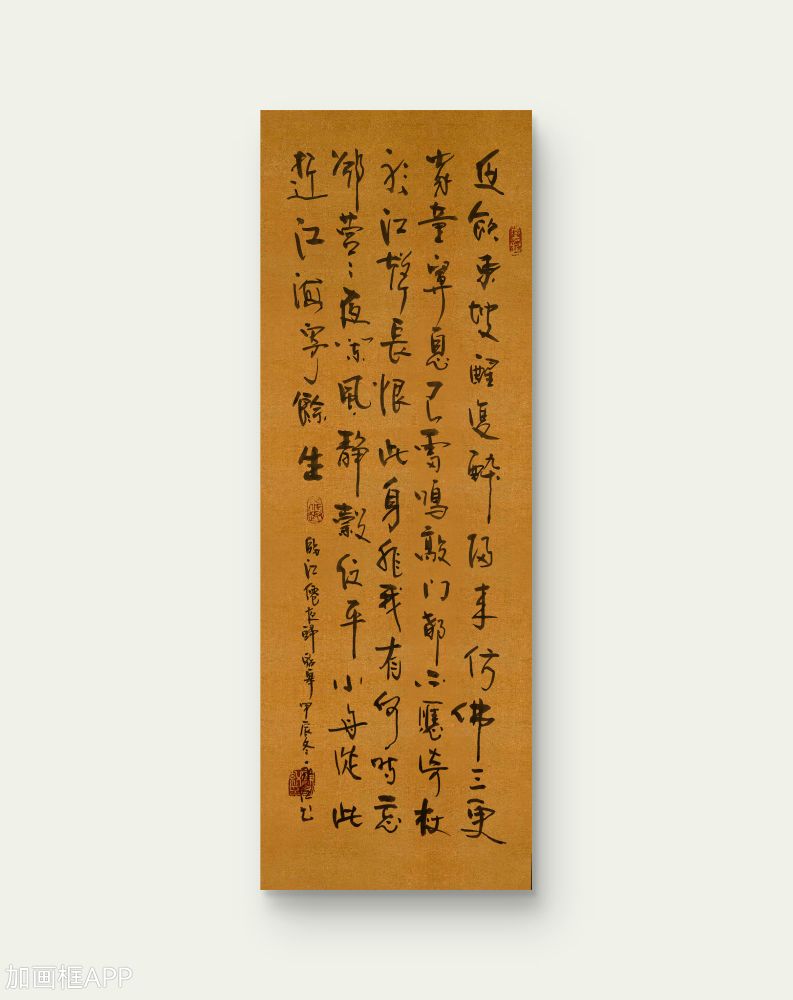 夜飲東坡醒復醉歸来仿佛三更
家童鼻息已雷鳴敲门都不應倚杖
聽江聲長恨此身非我有何時忘
却營〻夜闌風静縠紋平小舟從此
逝江海寄餘生
臨江僊夜歸臨皋甲辰冬
加画框APP